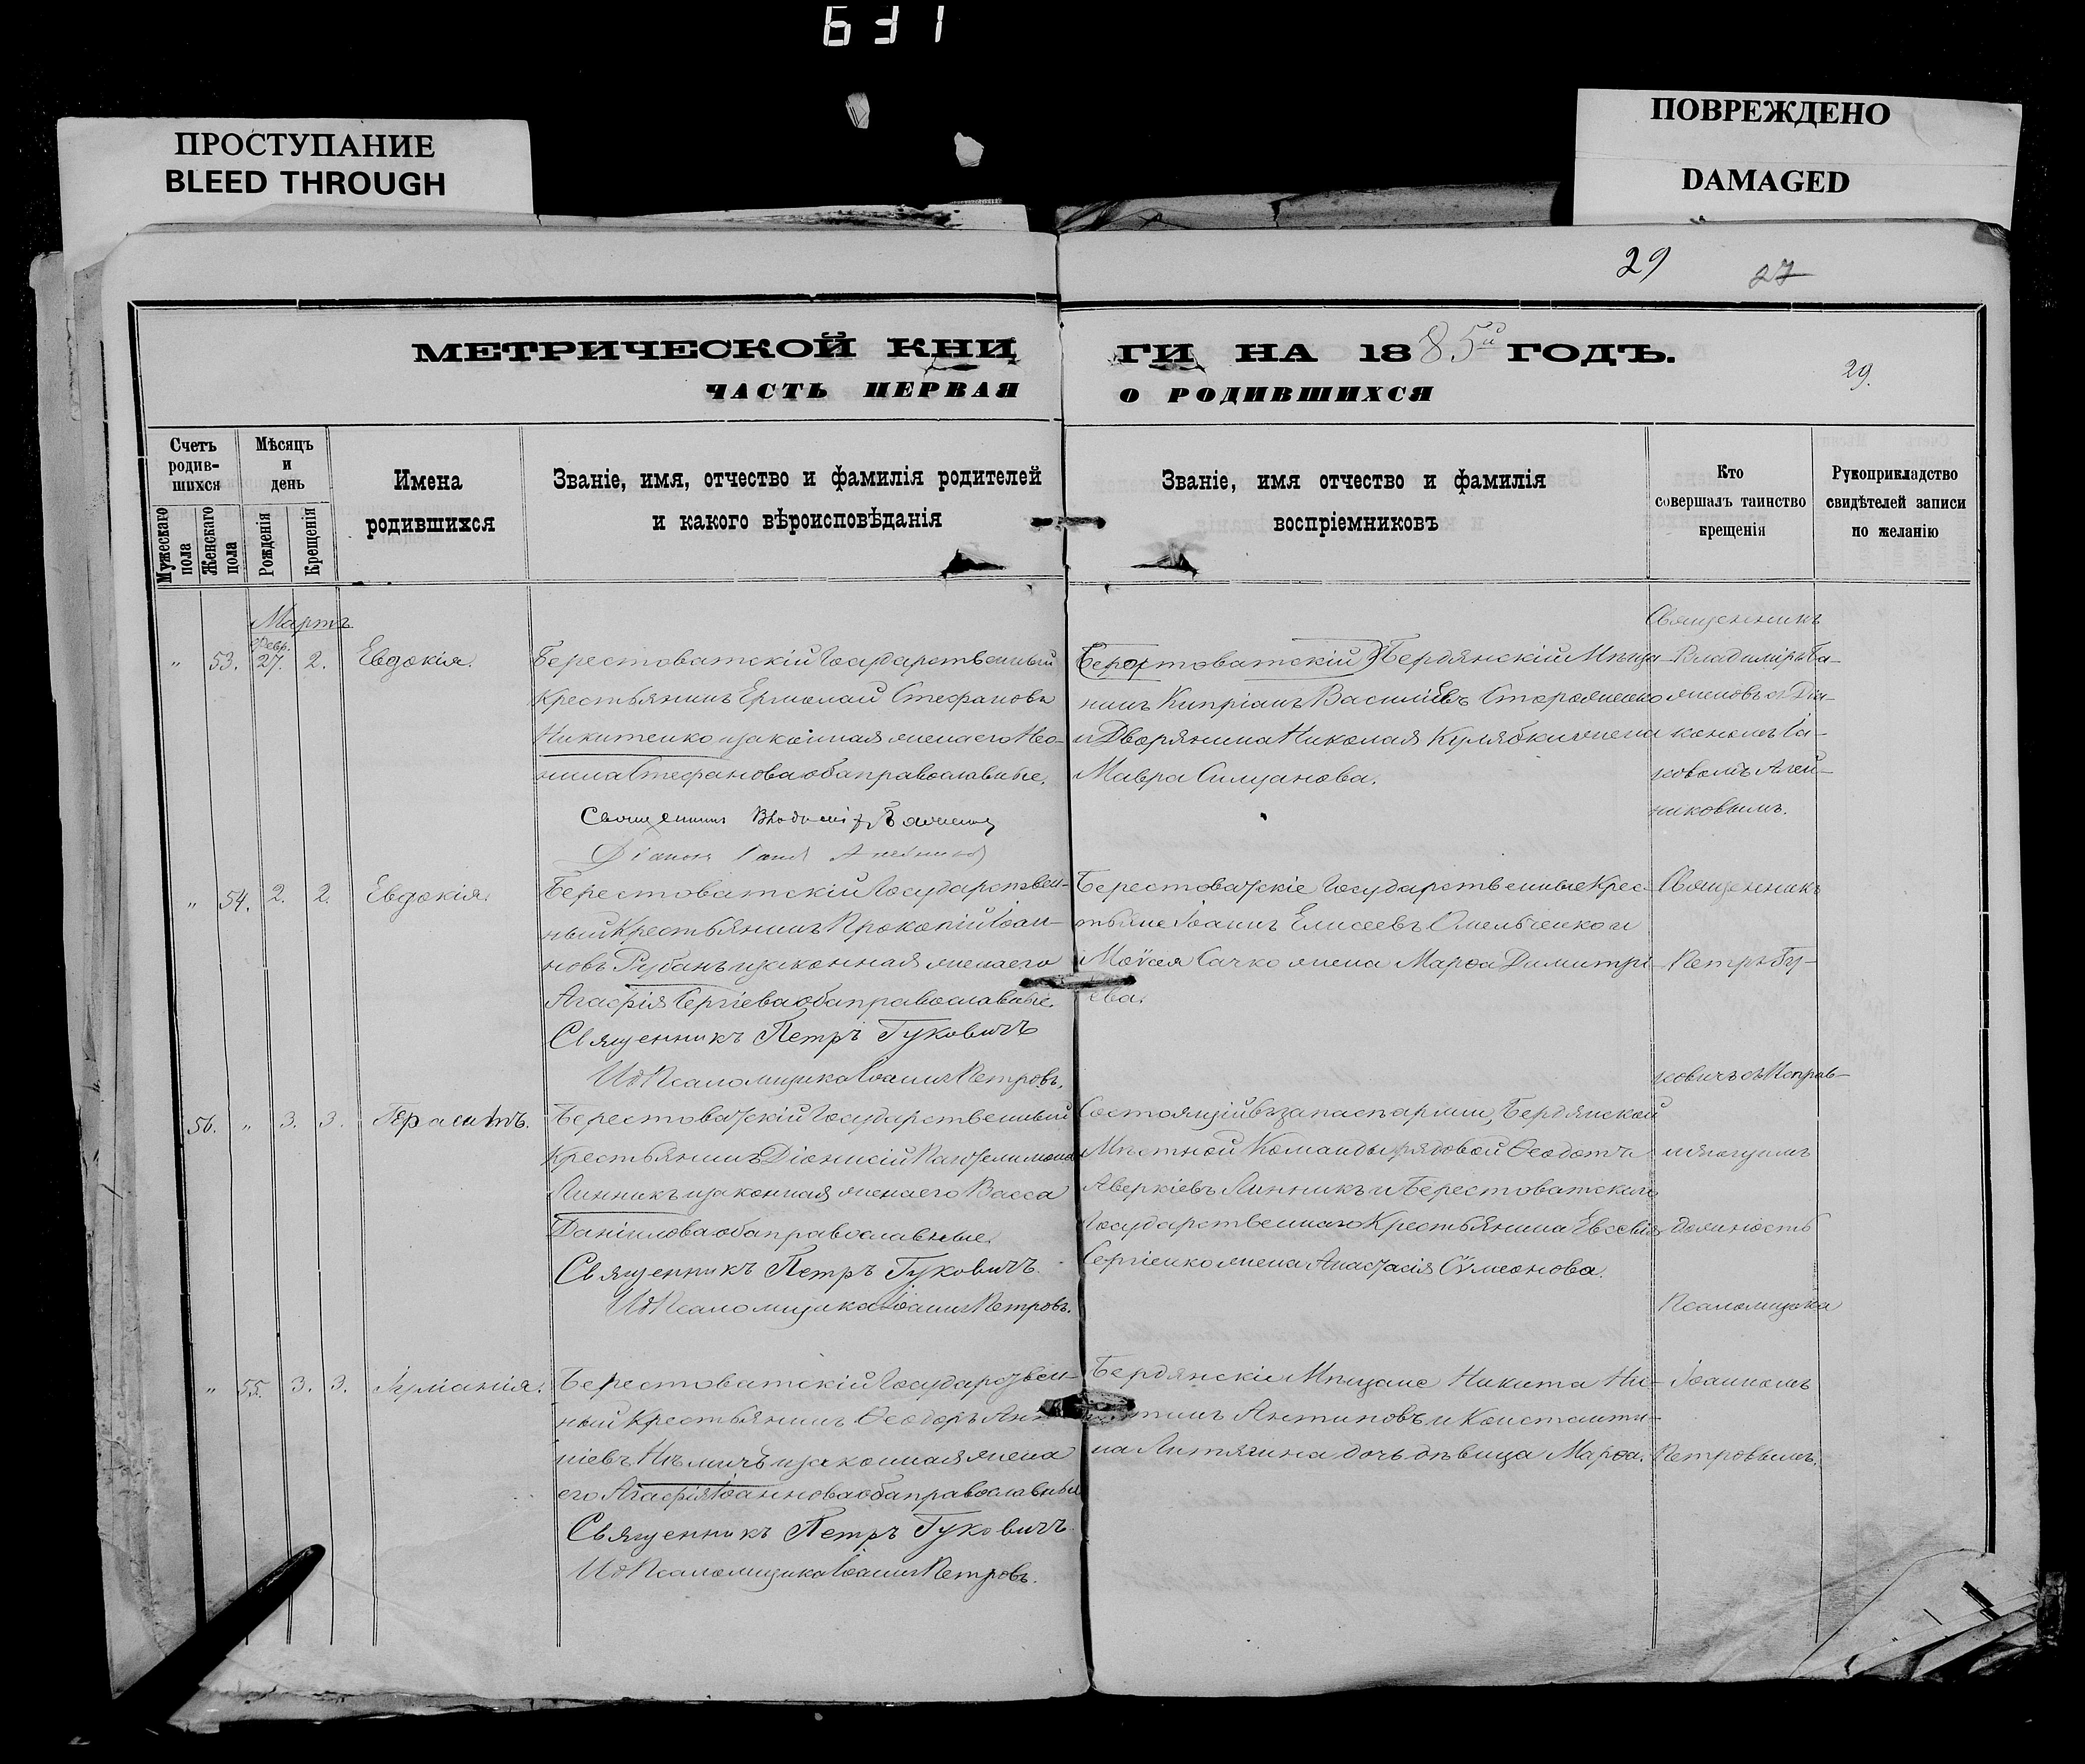 631
ПРОСТУПАНИЕ
BLEED THROUGH
ПОВРЕЖДЕНО
DAMAGED
29 27
МЕТРИЧЕСКОЙ КНИ
ГИ НА 1885й ГОДЪ.
29.
ЧАСТЬ ПЕРВАЯ
О РОДИВШИХСЯ
Счетъ
родив-
шихся
Мужескаго
пола
Женскаго
пола
Мѣсяцъ
и
день
Рожденія
Крещенія
Имена
родившихся
Званіе, имя, отчество и фамилія родителей
и какого вѣроисповѣданія
Званіе, имя отчество и фамилія
воспріемниковъ
Кто
совершалъ таинство
крещенія
Рукоприкладство
свидѣтелей записи
по желанію
Мартъ
Февр.
" 53. 27. 2. Евдокія.
Берестоватскій Государственный
крестьянинъ Ермолай Стефановъ
Никитенко и законная жена его Нео-
нила Стефанова оба православные.
Священникъ Владиміръ
Діаконъ
Берестоватскій Бердянскій Мѣща-
нинъ Кипріанъ Василіевъ
и Дворянина Николая Кулябки жена
Мавра Силуанова.
Священникъ
Владиміръ Ба-
женовъ съ Діа-
кономъ Іа-
ковомъ Алей-
никовымъ.
" 54. 2. 2. Евдокія.
Берестоватскій Государствен-
ный Крестьянинъ Прокопій Іоан-
новъ Рубанъ и законная жена его
Агафія Сергіева оба православные.
Священникъ Петръ Гуковичъ
ИдПсаломщика Іоаннъ Петровъ.
Берестоватскіе Государственные Крес-
тьяне Іоаннъ Елисеевъ Омельченко и
Моѵсея Сачко жена Марѳа Димитрі-
ева.
Священникъ
Петръ Гу-
ковичъ съ Исправ-
56. " 3. 3. Герасимъ.
Берестоватскій Государственный
крестьянинъ Діонисій Пантелимоновъ
Линникъ и законная жена его Васса
Даніилова оба православные.
Священникъ Петръ Гуковичъ.
ИдПсаломщика Іоаннъ Петровъ.
Состоящій въ запасѣ арміи, Бердянской
Мѣстной Команды рядовой Ѳеодотъ
Аверкіевъ Линникъ и Берестоватскаго
Государственнаго Крестьянина Евсевія
Сергіенко жена Анастасія Сѵмеонова.
ляющимъ
должность
Псаломщика
" 55. 3. 3. Іуліанія.
Берестоватскій Государствен-
ный Крестьянинъ Ѳеодоръ
ніевъ Нѣмичъ и законная жена
его Агафія Іоаннова оба православные
Священникъ Петръ Гуковичъ.
ИдПсаломщика Іоаннъ Петровъ.
Бердянскіе Мѣщане Никита Ни-
Антиповъ и Константи-
на Литягина дочь дѣвица Марѳа.
Іоанномъ
Петровымъ.